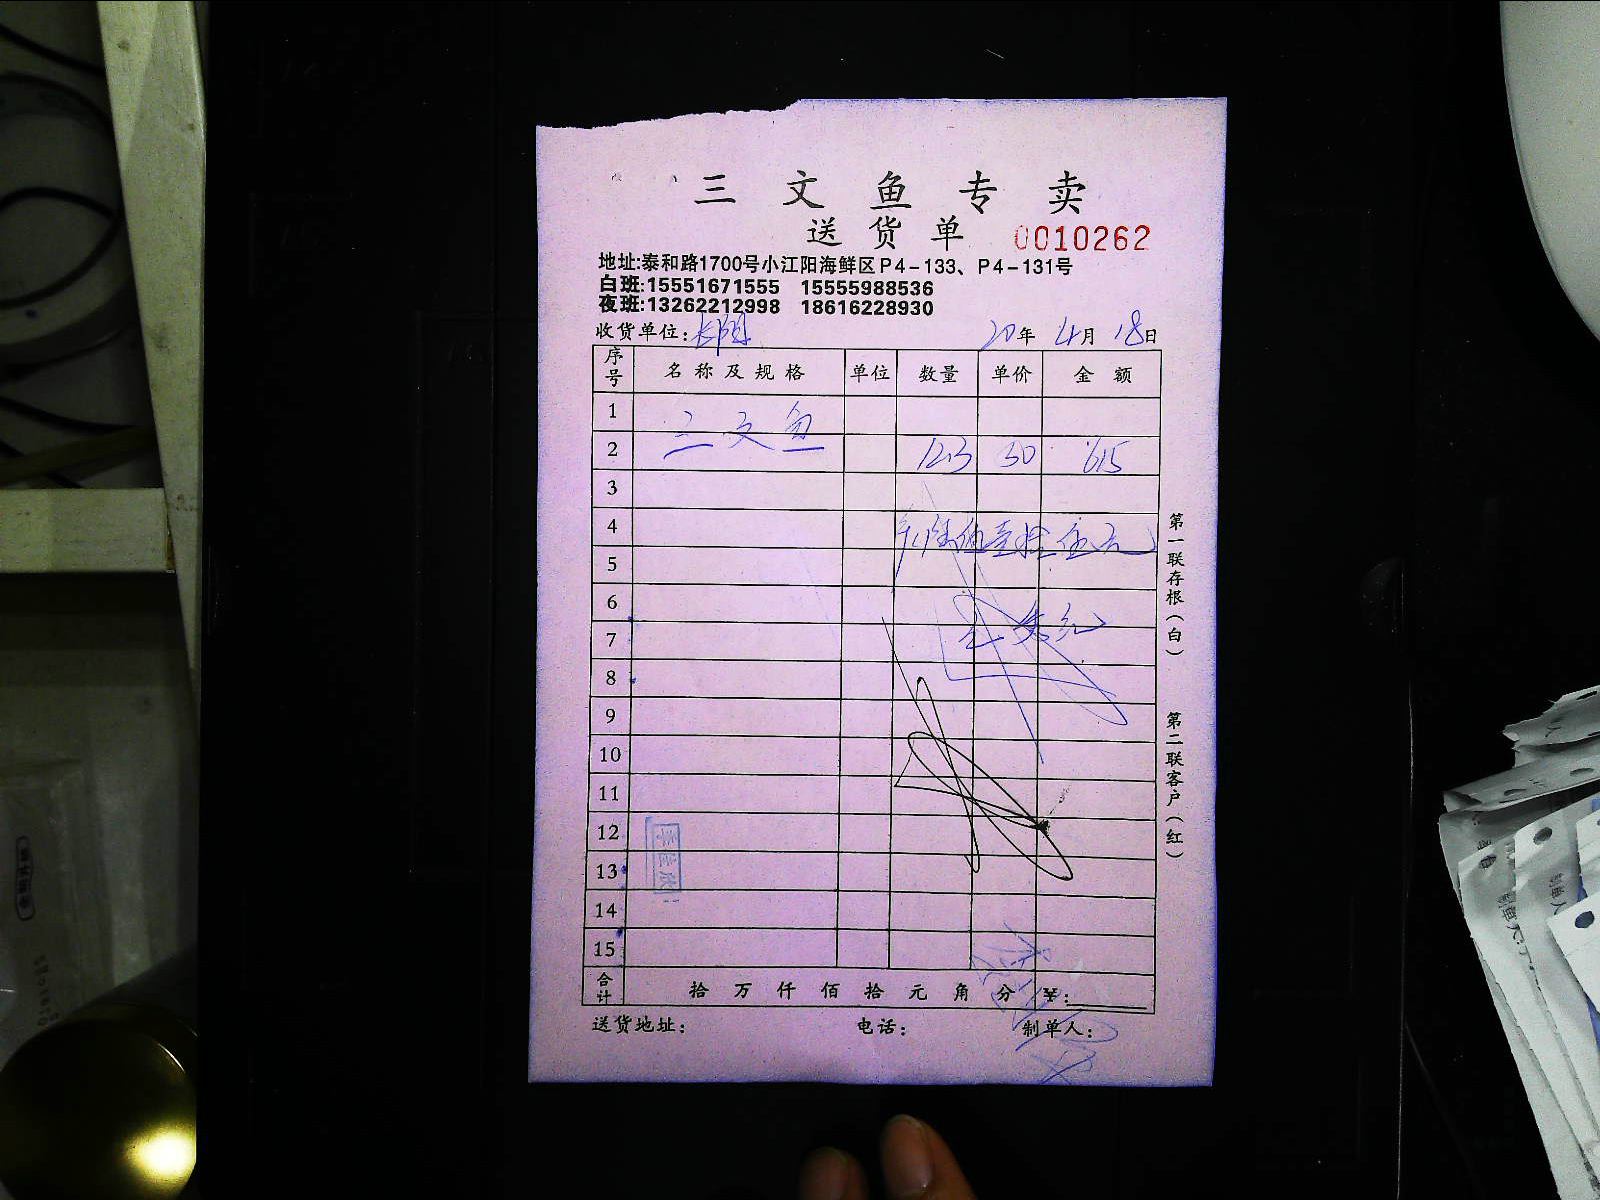 三文鱼专卖
送货单 0010262
地址:泰和路1700号小江阳海鲜区P4-133、P4-131号
白班:15551671555 15555988536
夜班:13262212998 18616228930
收货单位: 20年 4月 18日
序号 名称及规格 单位 数量 单价 金额
1
三文鱼
2 12.3 50 615
3
4 陆佰壹拾伍元
5
6
7
8
9
10
11
12
13
14
15
合计 拾万仟佰拾元角分 ¥:
送货地址: 电话: 制单人:
第一联存根(白)
第二联客户(红)